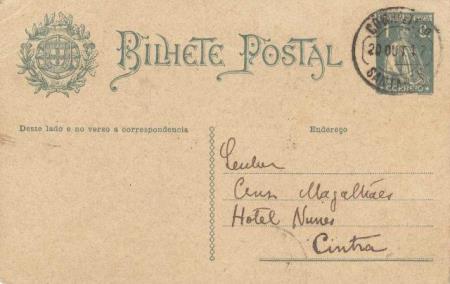 BILHETE POSTAL
CORREIO
20 OUT 1
Deste lado e no verso a correspondencia
Endereço
Cruz Magalhães
Hotel Nunes
Cintra